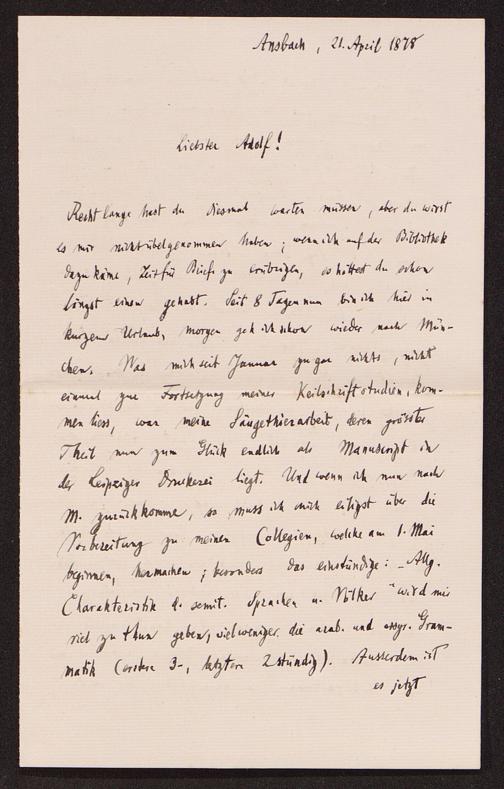 Ansbach, 21. April 1878
Liebster Adolf!
Recht lange hast du diesmal warten müssen, aber du wirst
es mir nicht übelgenommen haben; wenn ich auf der Bibliothek
dazu käme, Zeit für Briefe zu erübrigen, so hättest du schon
längst einen gehabt. Seit 8 Tagen nun bin ich hier in
kurzem Urlaub, morgen geh ich schon wieder nach Mün-
chen. Was mich seit Januar zu gar nichts, nicht
einmal zur Fortsetzung meiner Keilschriftstudien, kom-
men liess, war meine Säugethierarbeit, deren grösster
Theil nun zum Glück endlich als Manuscript in
der Leipziger Druckerei liegt. Und wenn ich nun nach
M. zurückkomme, so muss ich mich eiligst über die
Vorbereitung zu meinen Collegien, welche am 1. Mai
beginnen, hermachen; besonders das einstündige: „Allg.
Charakteristik d. semit. Sprachen u. Völker" wird mir
viel zu thun geben, viel weniger die arab. und assyr. Gram-
matik (erstere 3-, letztere 2stündig). Ausserdem ist
es jetzt